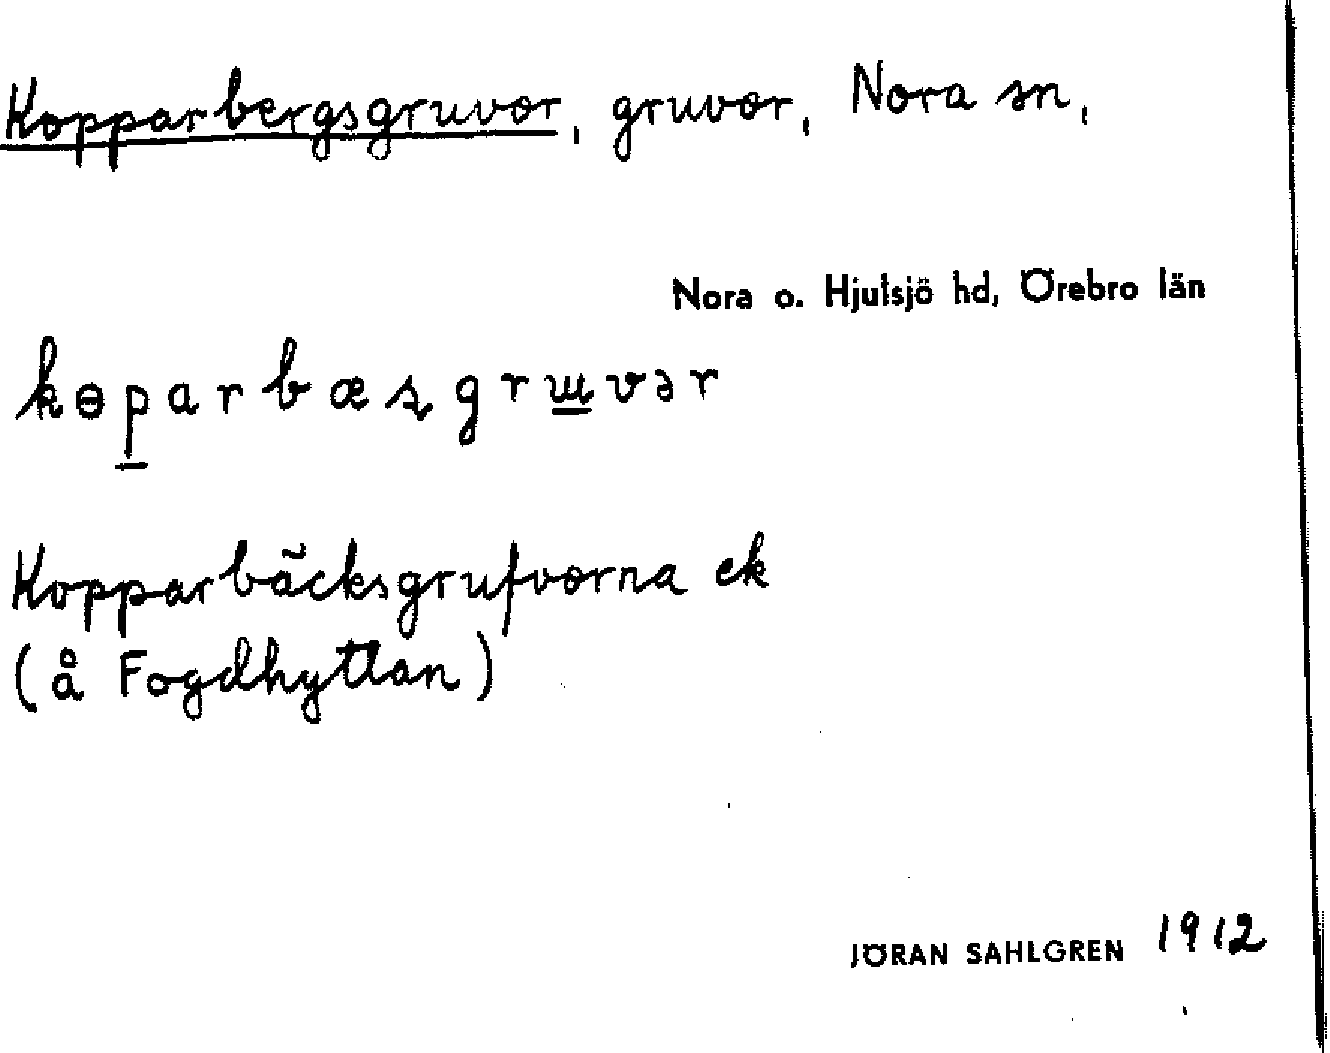 Kopparbergsgruvor, gruvor, Nora sn,
Nora o. Hjulsjö hd, Örebro län
kɵp̲arbæʂgrɯ̲vər
Kopparbäcksgrufvorna ek
(å Fogdhyttan)
JÖRAN SAHLGREN 1912